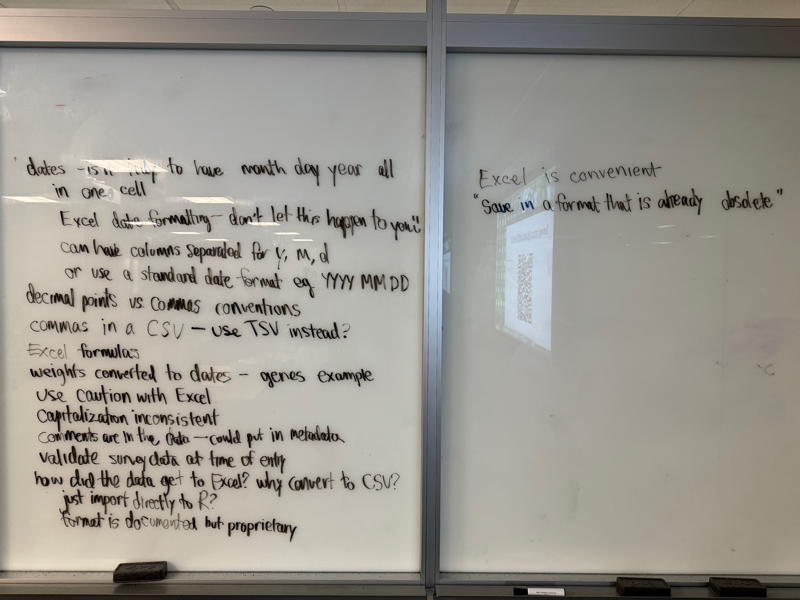 dates - is it okay to have month day year all
in one cell
Excel date formatting - don't let this happen to you!
can have columns separated for y, m, d
or use a standard date format eg YYYY MM DD
decimal points vs. commas conventions
commas in a CSV - use TSV instead?
Excel formulas
weights converted to dates - genes example
use caution with Excel
capitalization inconsistent
comments are in the data - could put in metadata
validate survey data at time of entry
how did the data get to Excel? why convert to CSV?
just import directly to R?
format is documented but proprietary
Excel is convenient
"Save in a format that is already obsolete"